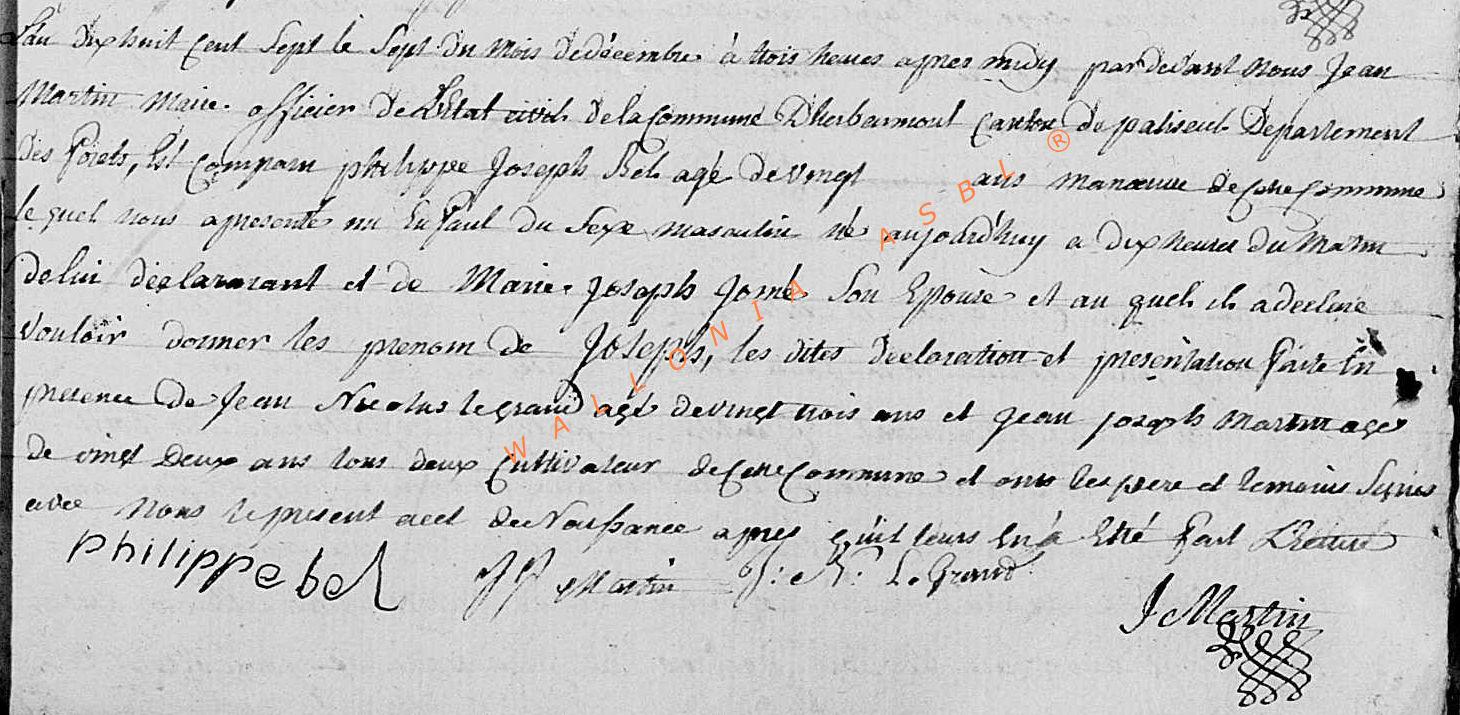 L'an dix huit Cent Sept le Sept du mois dedécembre à trois heures apres midy pardevant nous Jean
Martin Maire officier de L'Etat civil de la Commune Dherbeumont Canton de paliseul Departement
Des Forets, Est Comparu philippe Joseph Bel agé de vingt ans manœuvre de Cette Commune
le quel nous apresenté un Enfant du Sexe masculin né aujourdhuy a dix heures du Matin
de lui déclarant et de Marie Joseph Jomé Son Epouse et au quel il a declaré
Vouloir donner les prenom de Joseph, les dites declaration et presentation faite En
presence de Jean Nicolas legrand agé de vingt trois ans et jean joseph Martin agé
de vingt Deux ans tous deux Cultivateur de Cette Commune et ont les pere et temoins Signés
avec Nous le present acte de Naissance apres qu'il leurs En a Eté fait Lecture
Philippe bel JJ Martin J: N: LeGrand
J Martin
WALLONIA ASBL ®